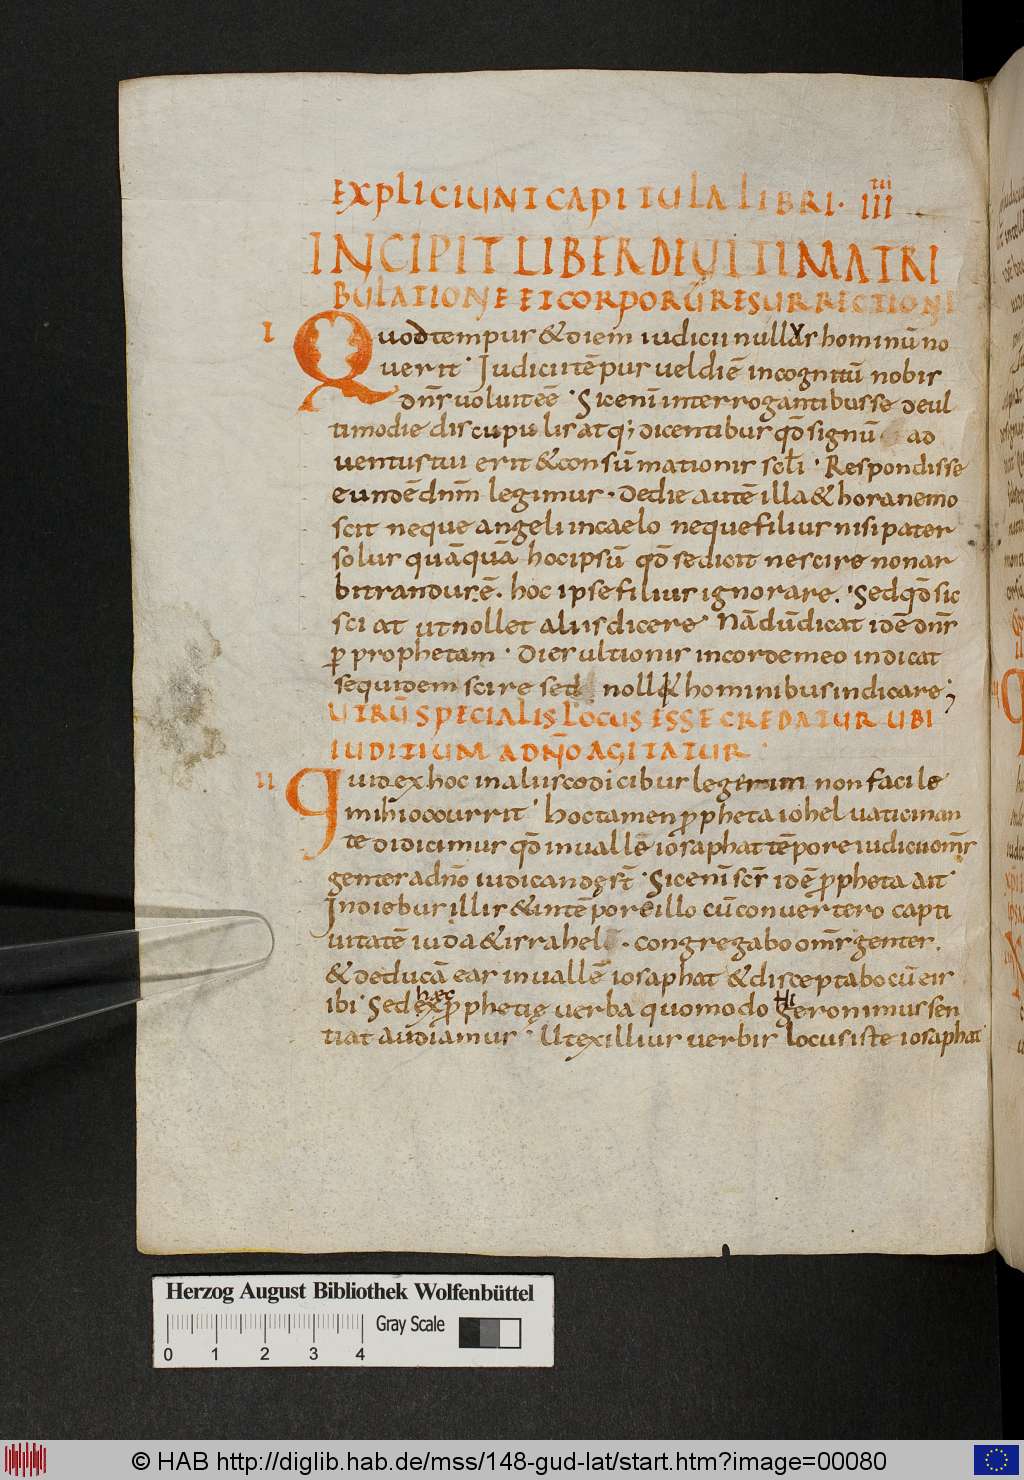 EXPLICIUNT CAPITULA LIBRI · III
INCIPIT LIBER DE ULTIMA TRI
BULATIONE ET CORPORŪ RESURRECTIONE
I Quod tempus & diem iudicii nullus hominū no
uerit · Iudicii tēpus uel diē incognitū nobis
dn̄s uoluit eē · Sic enī interrogantibus se de ul
timo die discipulis atq; dicentibus qd̄ signū ad
uentus tui erit & consūmationis scl̄i · Respondisse
eundē dnm̄ legimus · De die autē illa & hora nemo
scit neque angeli in caelo neque filius nisi pater
solus quāquā hoc ipsū qd̄ se dicit nescire non ar
bitrandus ē . hoc ipse filius ignorare . Sed qd̄ sic
sciat ut nollet aliis dicere · Nā dū dicat idē dn̄s
p̱ prophetam · Dies ultionis in corde meo indicat
se quidem scire sed noll& hominibus indicare ;
UTRŪ SPECIALIS LOCUS ESSE CREDATUR UBI
IUDITIUM A DN̄O AGITATUR ·
II Quid ex hoc in aliis codicibus legerim non facile
mihi occurrit · hoc tamen p̱pheta iohel uaticinan
te didicimus qd̄ in uallē iosaphat tēpore iudicii omn̄s
gentes a dn̄o iudicandę sn̄t · Sic enī scr̄ idē p̱pheta ait ·
In diebus illis & in tēpore illo cū conuertero capti
uitatē iuda & israhel · congregabo omn̄s gentes .
& deducā eas in uallē iosaphat & disceptabo cū eis
ibi · Sed hęc p̱phetię uerba quomodo Hieronimus sen
tiat audiamus · Ut ex illius uerbis locus iste iosaphat
Herzog August Bibliothek Wolfenbüttel
Gray Scale
0 1 2 3 4
© HAB http://diglib.hab.de/mss/148-gud-lat/start.htm?image=00080